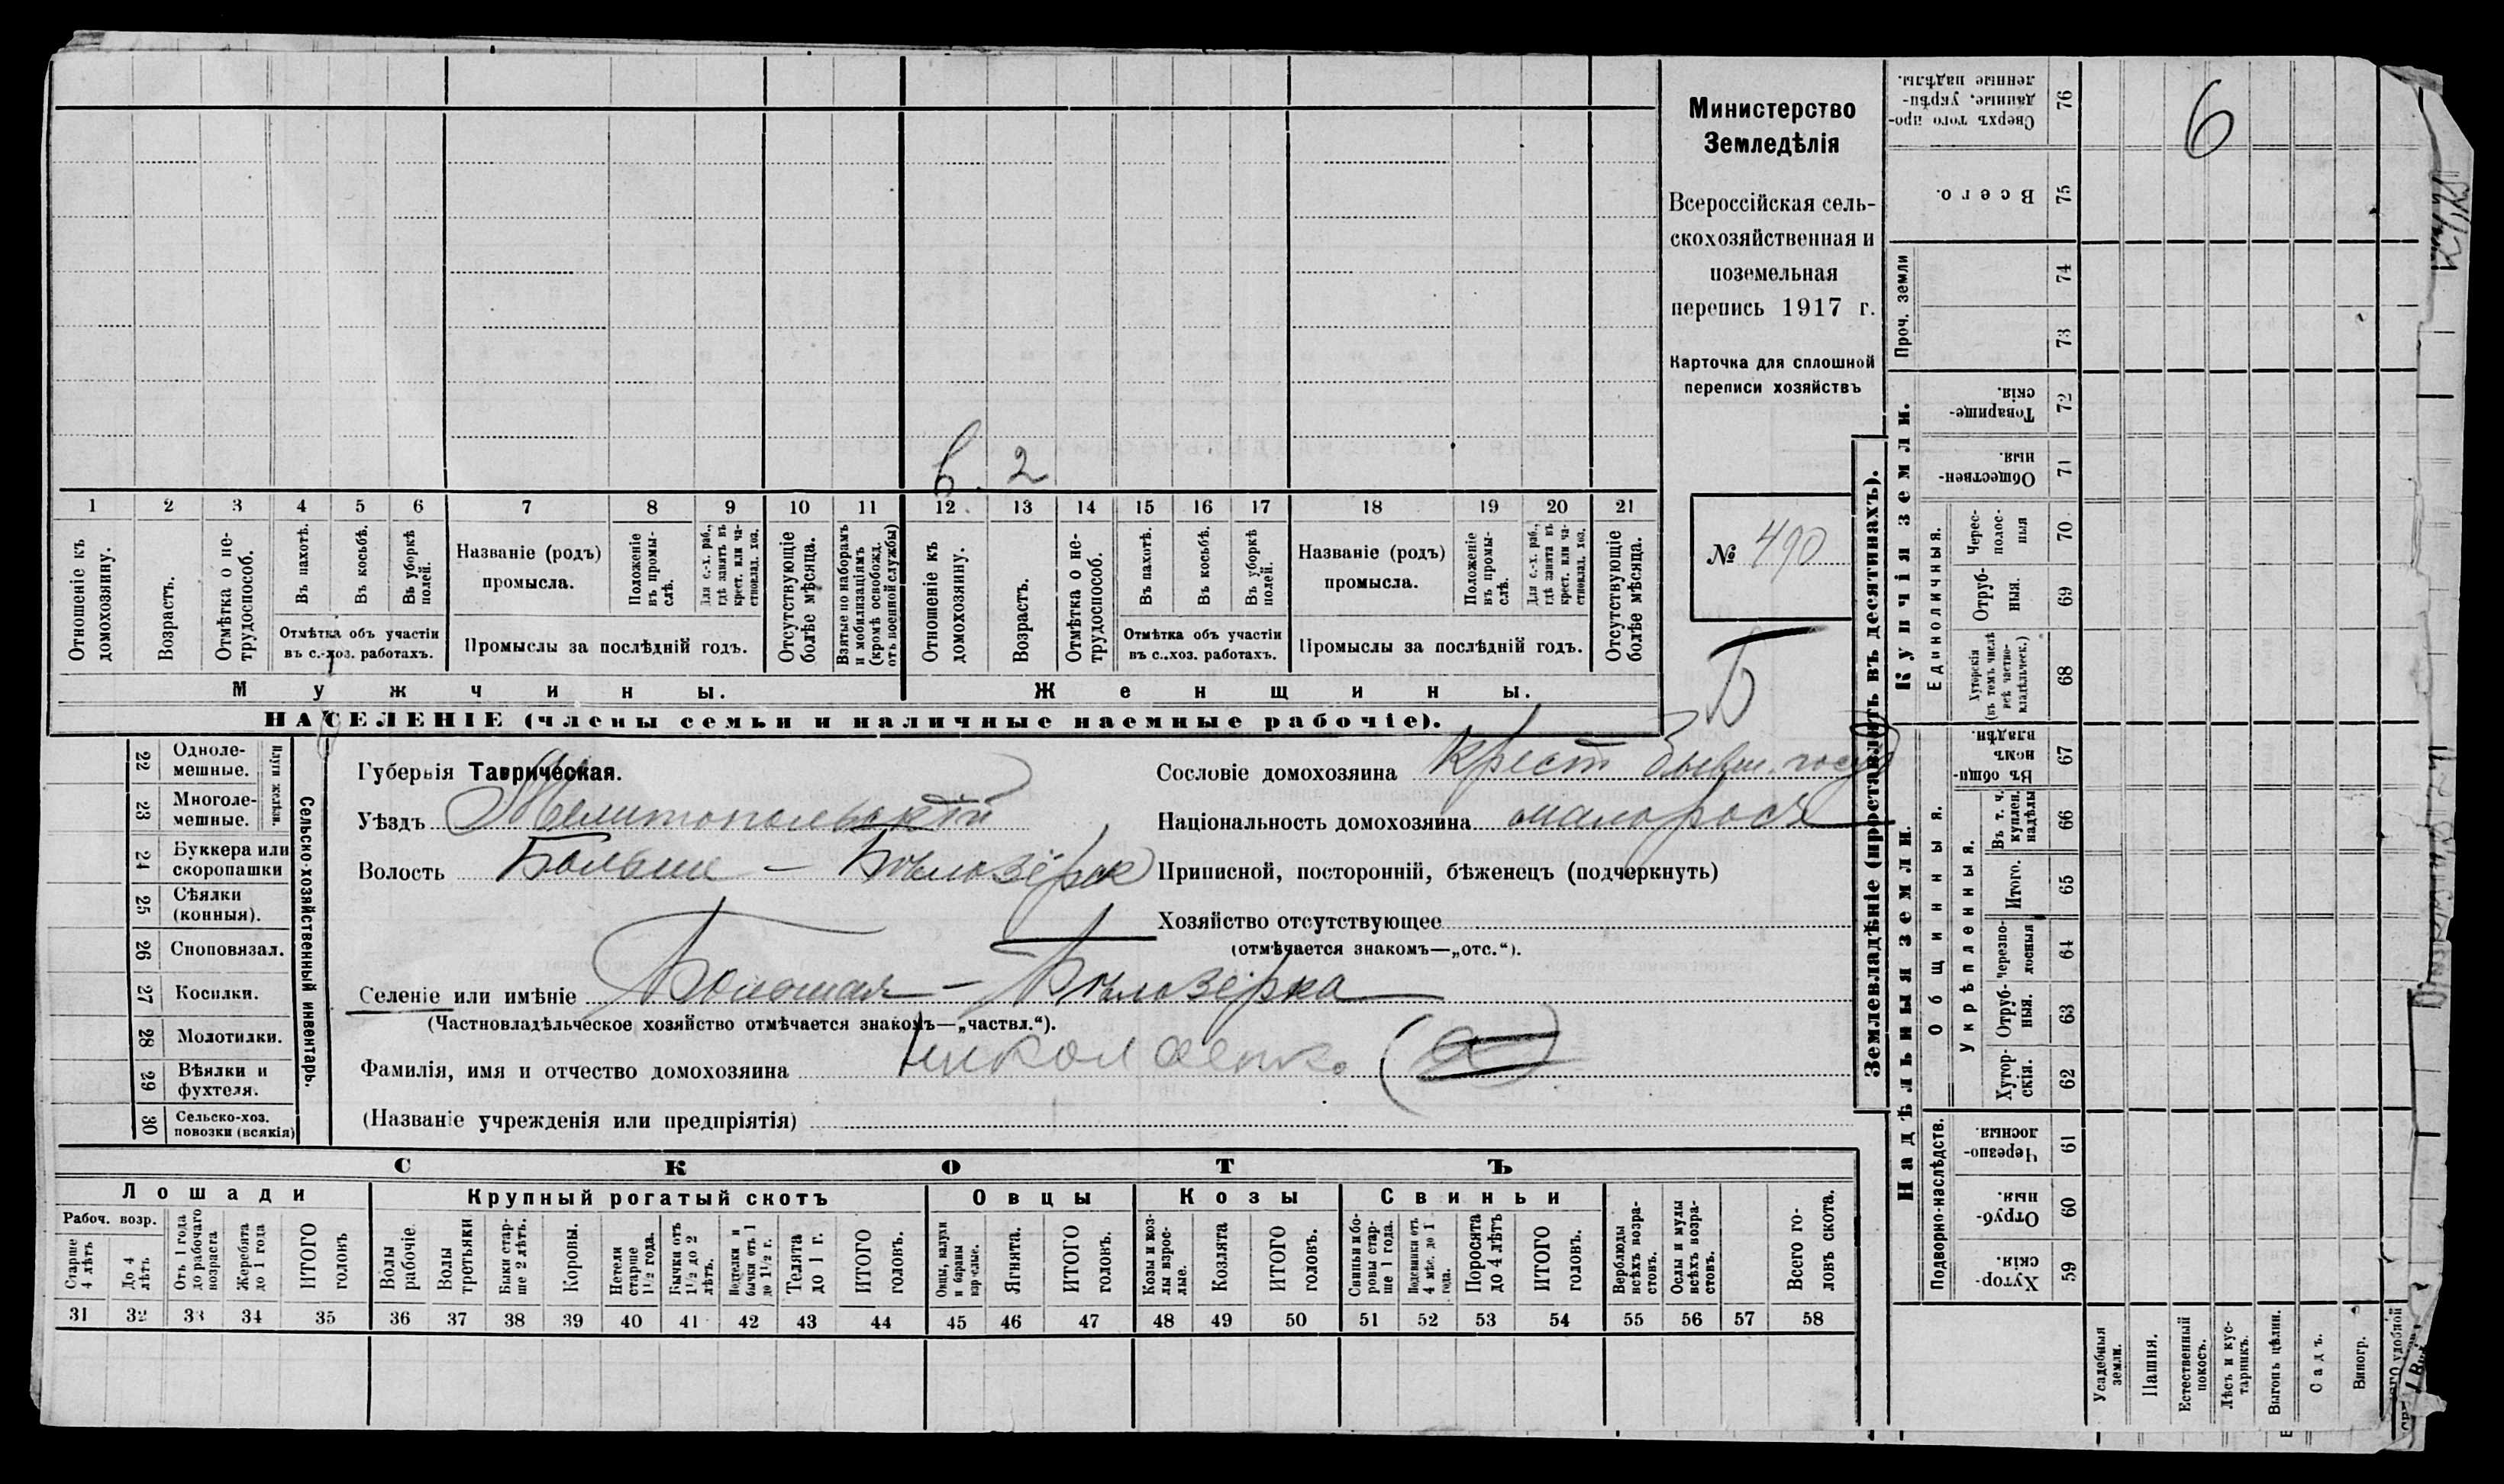 Министерство
Земледѣлія
Всероссійская сель-
скохозяйственная и
поземельная
перепись 1917 г.
Карточка для сплошной
переписи хозяйствъ
№ 490
Б
6
в. 2
1 2 3 4 5 6 7 8 9 10 11 12 13 14 15 16 17 18 19 20 21
Отношеніе къ домохозяину.
Возрастъ.
Отмѣтка о не-трудоспособ.
Въ пахотѣ.
Въ косьбѣ.
Въ уборкѣ полей.
Отмѣтка объ участіи
въ с.-хоз. работахъ.
Названіе (родъ)
промысла.
Положеніе въ промы-слѣ.
Для с.-х. раб., гдѣ занятъ въ крест. или ча-стновлад. хоз.
Промыслы за послѣдній годъ.
Отсутствующіе болѣе мѣсяца.
Взятые по наборамъ и мобилизаціямъ (кромѣ освобожд. отъ военной службы)
Отношеніе къ домохозяину.
Возрастъ.
Отмѣтка о не-трудоспособ.
Въ пахотѣ.
Въ косьбѣ.
Въ уборкѣ полей.
Отмѣтка объ участіи
въ с.-хоз. работахъ.
Названіе (родъ)
промысла.
Положеніе въ промы-слѣ.
Для с.-х. раб., гдѣ занята въ крест. или ча-стновлад. хоз.
Промыслы за послѣдній годъ.
Отсутствующіе болѣе мѣсяца.
Мужчины.
Женщины.
НАСЕЛЕНІЕ (члены семьи и наличные наемные рабочіе).
Сельско-хозяйственный инвентарь.
Плуги желѣзн.
22 Одноле-
мешные.
23 Многоле-
мешные.
24 Буккера или
скоропашки
25 Сѣялки
(конныя).
26 Сноповязал.
27 Косилки.
28 Молотилки.
29 Вѣялки и
фухтеля.
30 Сельско-хоз.
повозки (всякія)
Губернія Таврическая.
Уѣздъ Мелитопольскій
Волость Больше-Бѣлозёрск
Селеніе или имѣніе Большая-Бѣлозёрка
(Частновладѣльческое хозяйство отмѣчается знакомъ—„частвл.“).
Фамилія, имя и отчество домохозяина Николаенко (а)
(Названіе учрежденія или предпріятія)
Сословіе домохозяина крест бывш. госуд
Національность домохозяина малоросъ
Приписной, посторонній, бѣженецъ (подчеркнуть)
Хозяйство отсутствующее
(отмѣчается знакомъ—„отс.“).
СКОТЪ
Лошади
Крупный рогатый скотъ
Овцы
Козы
Свиньи
Рабоч. возр.
Старше 4 лѣтъ
До 4 лѣтъ
Отъ 1 года до рабочаго возраста
Жеребята до 1 года
ИТОГО головъ
Волы рабочіе
Волы третьяки
Быки стар-ше 2 лѣтъ.
Коровы.
Нетели старше 1½ года.
Бычки отъ 1½ до 2 лѣтъ.
Подтелки и бычки отъ 1 до 1½ г.
Телята до 1 г.
ИТОГО головъ.
Овцы, валухи и бараны взрослые.
Ягнята.
ИТОГО головъ.
Козы и коз-лы взрос-лые.
Козлята
ИТОГО головъ.
Свиньи и бо-ровы стар-ше 1 года.
Подсвинки отъ 4 мѣс. до 1 года.
Поросята до 4 лѣтъ
ИТОГО головъ.
Верблюды всѣхъ возра-стовъ.
Ослы и мулы всѣхъ возра-стовъ.
Всего го-ловъ скота.
31 32 33 34 35 36 37 38 39 40 41 42 43 44 45 46 47 48 49 50 51 52 53 54 55 56 57 58
Землевладѣніе (проставлять въ десятинахъ).
Надѣльныя земли.
Купчія земли.
Проч. земли
Подворно-наслѣдств.
Общинныя.
Укрѣпленныя.
Единоличныя.
Сверхъ того про-данные, укрѣп-ленные надѣлы. 76
Всего. 75
74
73
Товарище-скія 72
Обществен-ныя. 71
Черес-полос-ныя 70
Отруб-ныя. 69
Хуторскія (въ томъ числѣ всѣ частно-владѣльческ.) 68
Въ общи-номъ владѣн. 67
Въ т. ч. куплен. надѣлы 66
Итого. 65
Черезпо-лосныя 64
Отруб-ныя. 63
Хутор-скія. 62
Черезпо-лосныя. 61
Отруб-ныя. 60
Хутор-скія. 59
Усадебныя земли.
Пашня.
Естественный покосъ.
Лѣсъ и кус-тарникъ.
Выгонъ цѣлин.
Садъ.
Виногр.